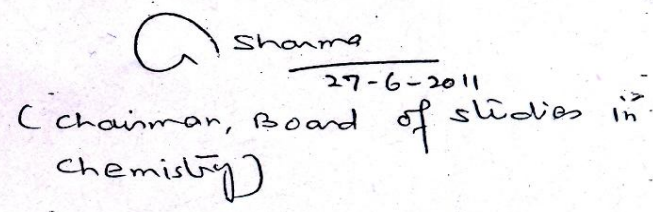 G Sharma
27-6-2011
(Chairman, Board of studies in
chemistry)